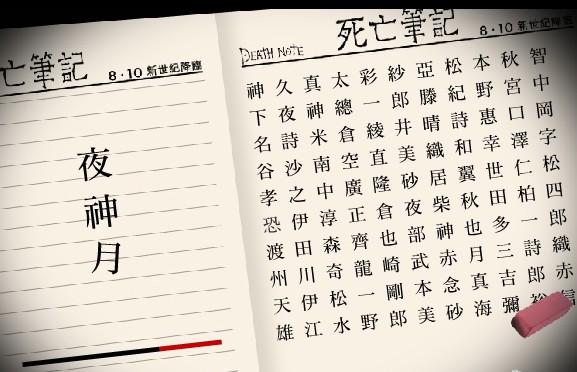 亡筆記
8·10 新世紀降臨
夜神月
DEATH NOTE
死亡筆記
8·10 新世紀降臨
神久真太彩紗亞松本秋智
下夜神總一郎滕紀野宮中
名詩米倉綾井晴詩惠口岡
谷沙南空直美織和幸澤字
孝之中廣隆砂居翼世仁松
恐伊淳正倉夜柴秋田柏四
渡田森齊也部神也多一郎
州川奇龍崎武赤月三詩織
天伊松一剛本念真吉郎赤
雄江水野郎美砂海彌